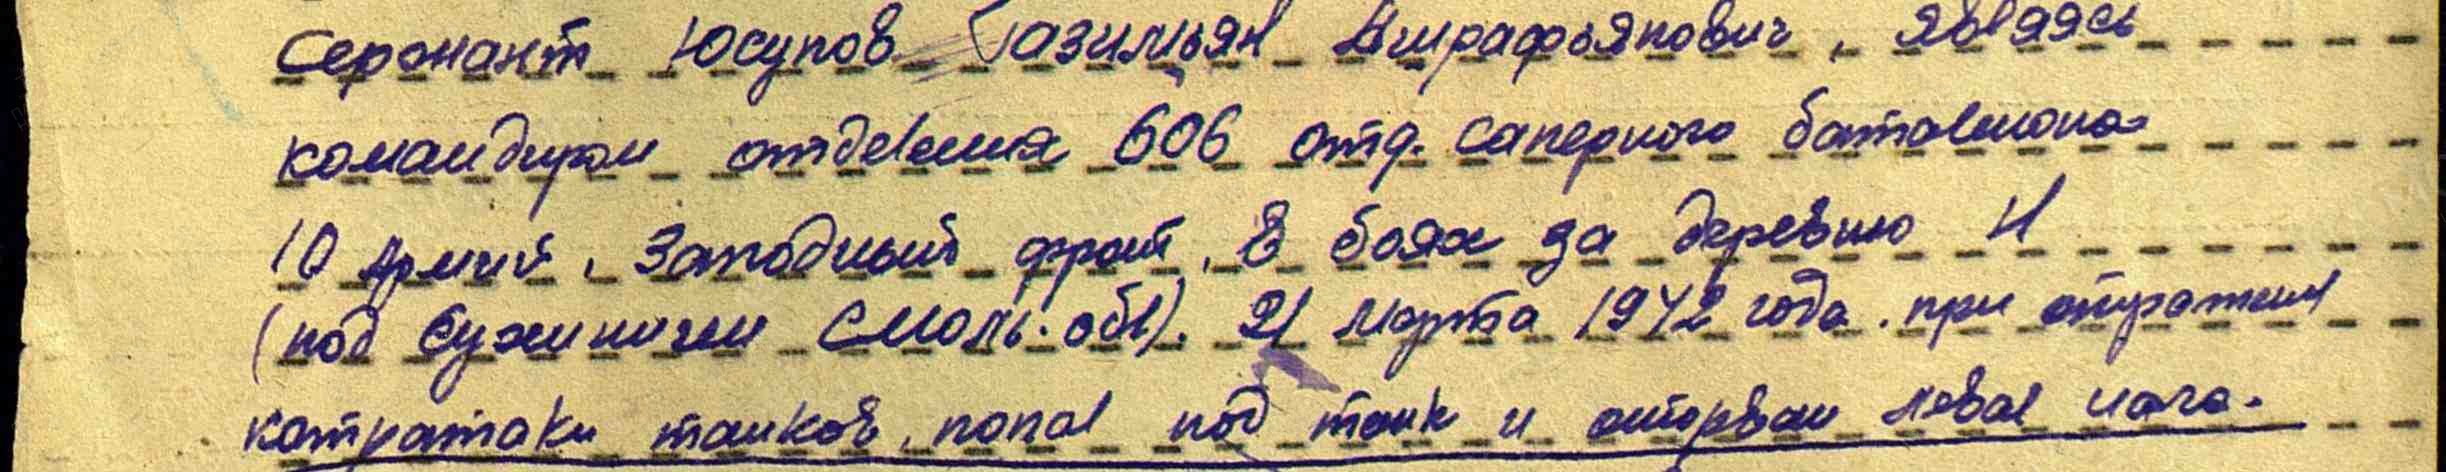 Сержант Юсупов Газимьян Ашрафьянович, являясь
командиром отделения 606 отд. саперного баталиона
10 Армий, Западный фронт, в боях за деревню Н
(под Сухиничеи Смоль. обл). 21 марта 1942 года. при отражении
котратаки танков, попал под танк и оторван левая нога.